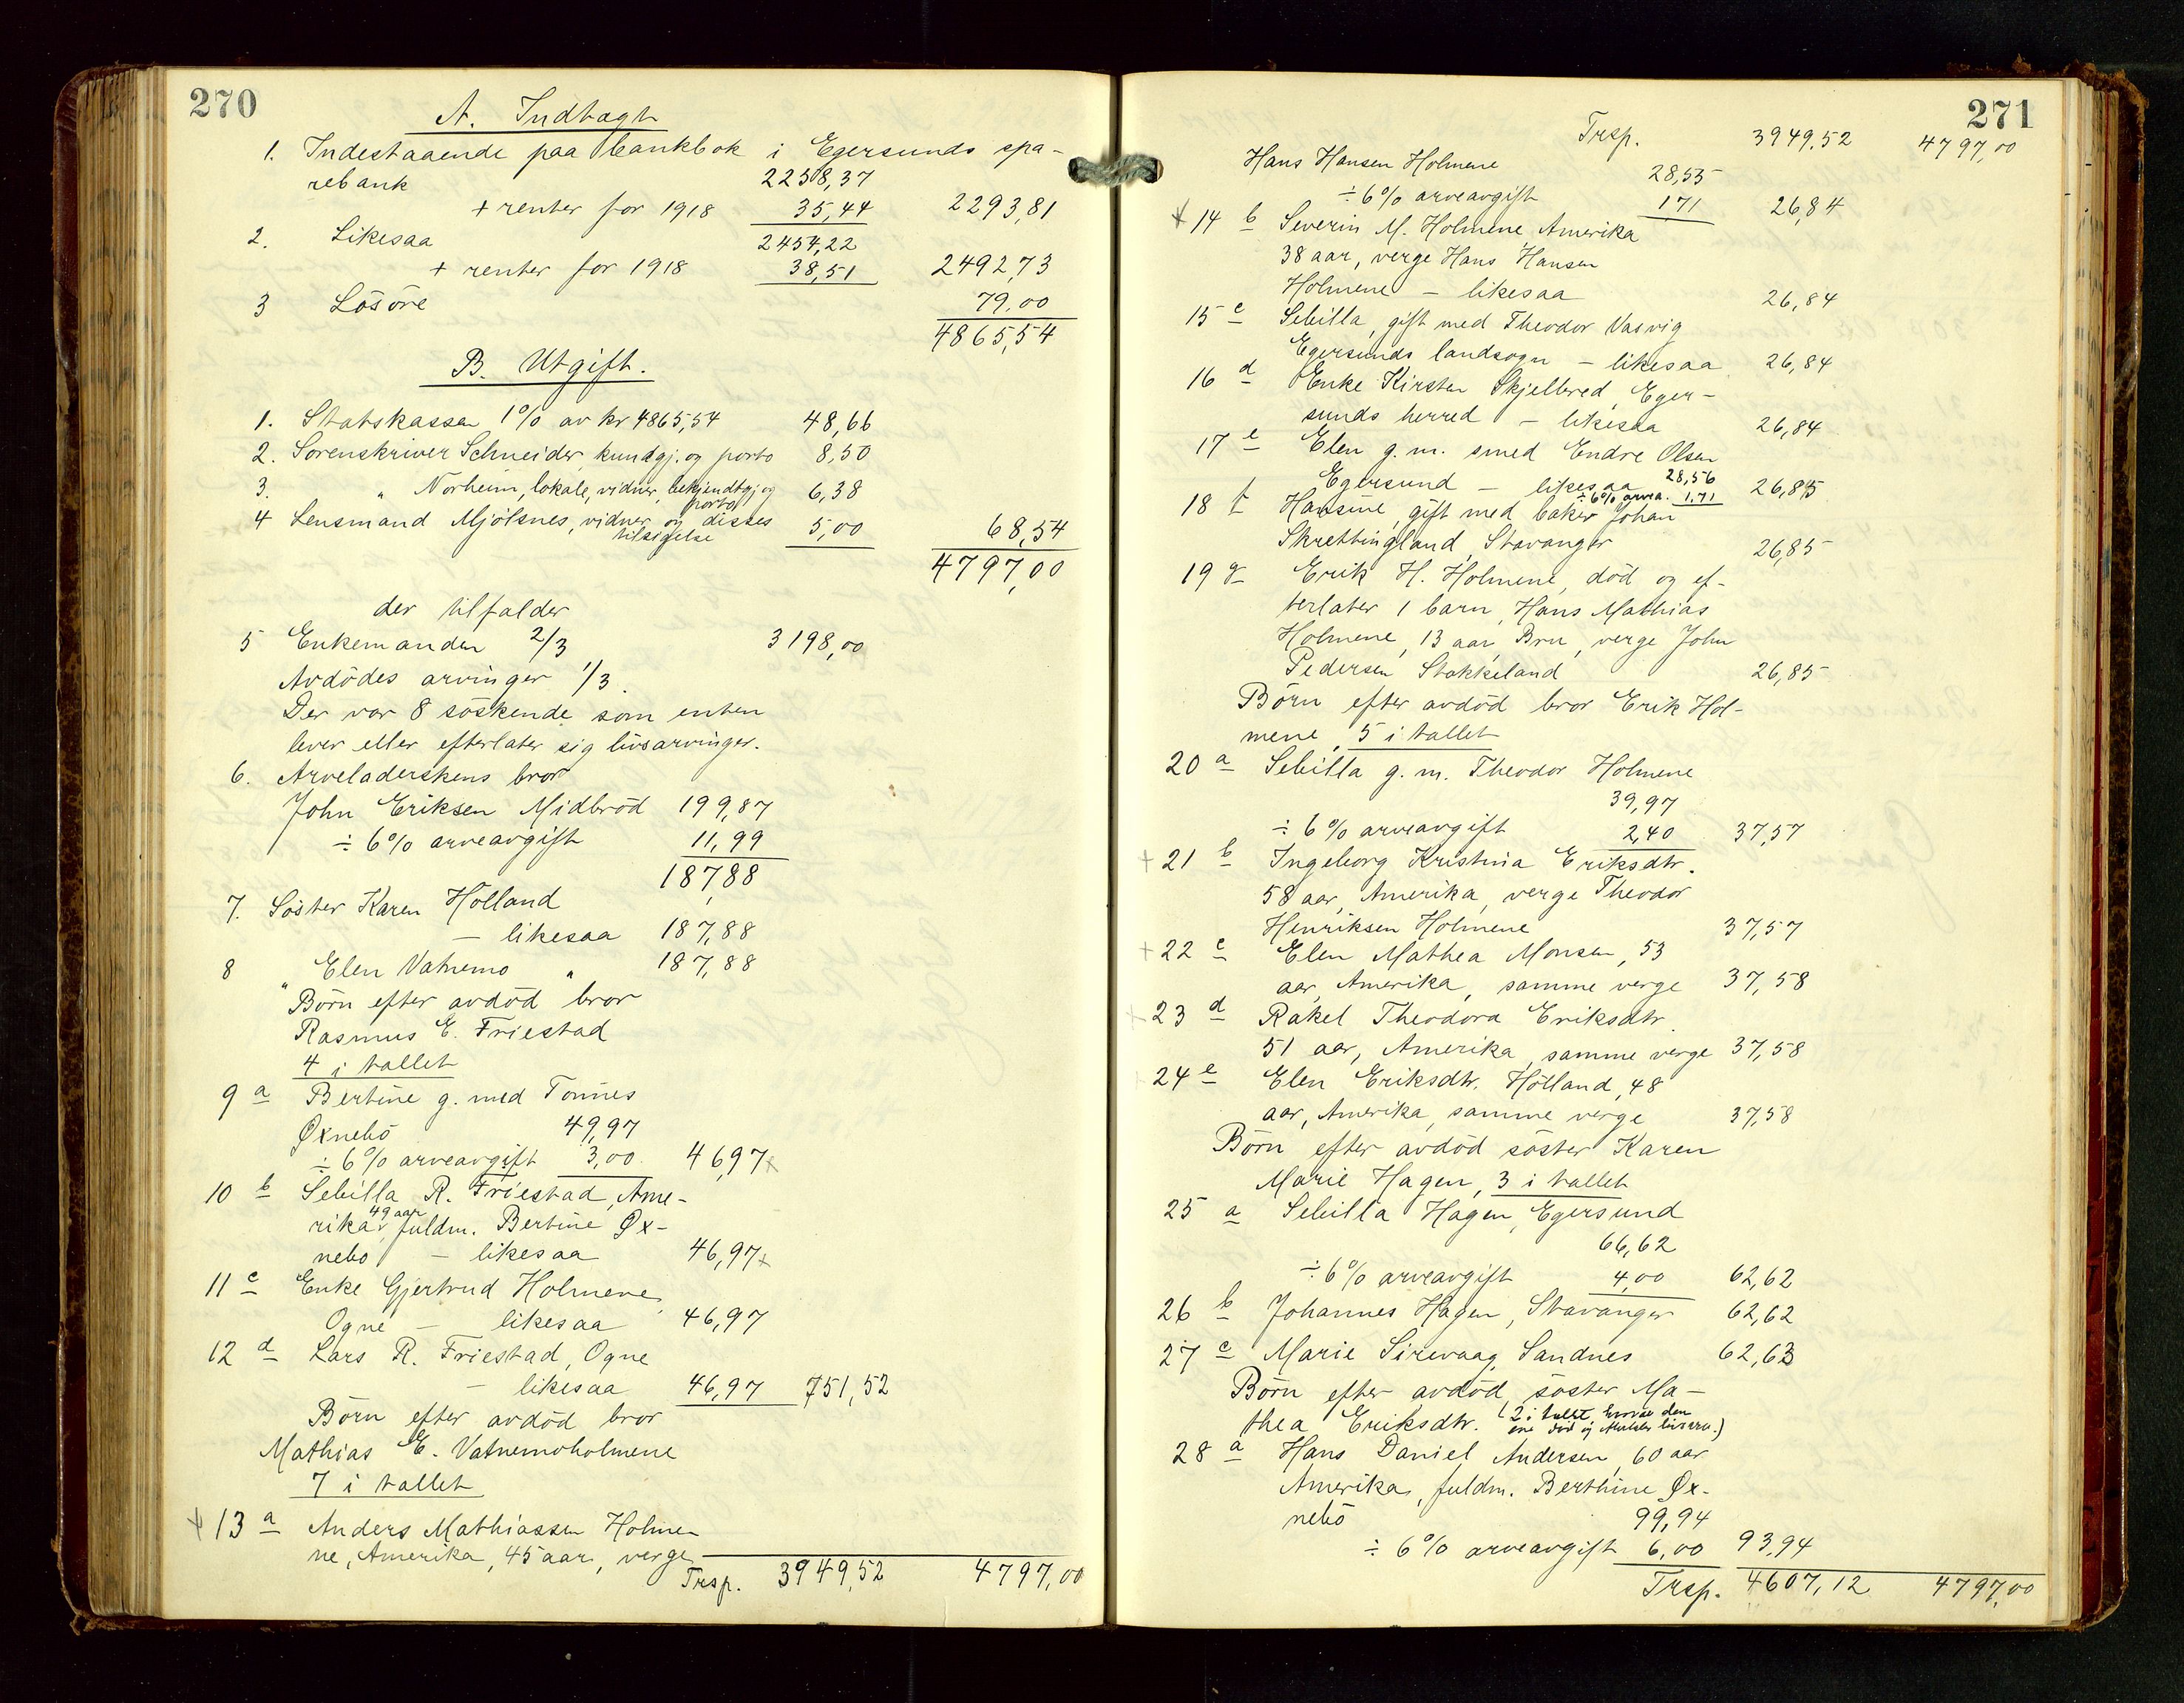 270
A. Indtægt
1. Indestaaende paa bankbok i Egersunds spa-
rebank 2258,37
+ renter for 1918 35,44 2293,81
2. Likesaa 2454,22
+ renter for 1918 38,51 2492,73
3 Løsøre 79,00
4865,54
B. Utgift.
1. Statskassen 1% av kr 4865,54 48,66
2. Sorenskriver Schneider, kundgj. og porto 8,50
3. " Norheim, lokale, vidner, bekjendtgj og porto 6,38
4 Lensmand Mjølsnes, vidner og disses tilsigelse 5,00 68,54
4797,00
der tilfalder
5 Enkemanden 2/3 3198,00
Avdødes arvinger 1/3.
Der var 8 søskende som enten
lever eller efterlater sig livsarvinger.
6. Arveladerskens bror
John Eriksen Midbrød 199,87
÷ 6% arveavgift 11,99
187,88
7. Søster Karen Holland
— likesaa 187,88
8 " Elen Vatnemo " 187,88
Børn efter avdød bror
Rasmus E. Friestad
4 i tallet
9 a Bertine g. med Tønnes
Øxnebø 49,97
÷ 6% arveavgift 3,00 46,97 x
10 b Sebilla R. Friestad, Ame-
rika, 49 aar fuldm. Bertine Øx-
nebø — likesaa 46,97 x
11 c Enke Gjertrud Holmene,
Ogne — likesaa 46,97
12 d Lars R. Friestad, Ogne
— likesaa 46,97 751,52
Børn efter avdød bror
Mathias E. Vatnemoholmene
7 i tallet
+ 13 a Anders Mathiassen Holme-
ne, Amerika, 45 aar, verge
Trsp. 3949,52 4797,00
271
Trsp. 3949,52 4797,00
Hans Hansen Holmene 28,55
÷ 6% arveavgift 1,71 26,84
+ 14 b Severin M. Holmene Amerika
38 aar, verge Hans Hansen
Holmene — likesaa 26,84
15 c Sebilla, gift med Theodor Vasvig
Egersunds landsogn — likesaa 26,84
16 d Enke Kirsten Skjelbred, Eger-
sunds herred — likesaa 26,84
17 e Elen g. m. smed Endre Olsen
Egersund — likesaa 28,56
÷ 6% arvea. 1,71 26,85
18 f Hansine, gift med baker Johan
Skrettingland, Stavanger 26,85
19 g Erik H. Holmene, død og ef-
terlater 1 barn, Hans Mathias
Holmene, 13 aar, Bru, verge John
Pedersen Stokkeland 26,85
Børn efter avdød bror Erik Hol-
mene, 5 i tallet
20 a Sebilla g. m. Theodor Holmene
39,97
÷ 6% arveavgift 2,40 37,57
+ 21 b Ingeborg Kristina Eriksdtr.
58 aar, Amerika, verge Theodor
Henriksen Holmene 37,57
+ 22 c Elen Mathea Monsen, 53
aar, Amerika, samme verge 37,58
+ 23 d Rakel Theodora Eriksdtr.
51 aar, Amerika, samme verge 37,58
+ 24 e Elen Eriksdtr. Hølland, 48
aar, Amerika, samme verge 37,58
Børn efter avdød søster Karen
Marie Hagen, 3 i tallet
25 a Sebilla Hagen, Egersund
66,62
÷ 6% arveavgift 4,00 62,62
26 b Johannes Hagen, Stavanger 62,62
27 c Marie Sirevaag, Sandnes 62,63
Børn efter avdød søster Ma-
thea Eriksdtr. (2 i tallet, hvorav den
ene død og livsarv.)
28 a Hans Daniel Andersen, 60 aar
Amerika, fuldm. Berthine Øx-
nebø 99,94
÷ 6% arveavgift 6,00 93,94
Trsp. 4607,12 4797,00